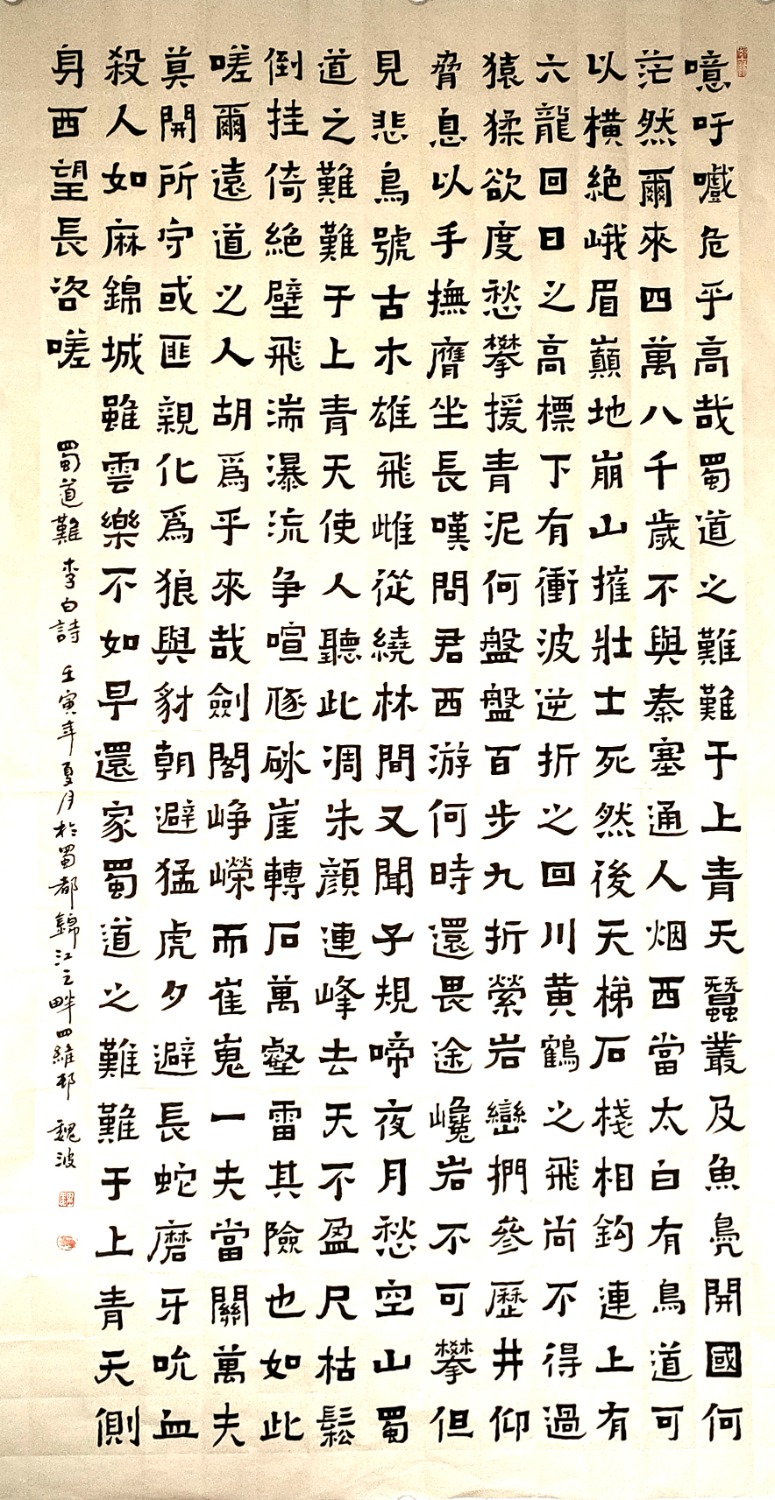 噫吁嚱危乎高哉蜀道之難難于上青天蠶叢及魚鳧開國何
茫然爾來四萬八千歲不與秦塞通人烟西當太白有鳥道可
以橫絶峨眉巔地崩山摧壯士死然後天梯石棧相鈎連上有
六龍回日之高標下有衝波逆折之回川黄鶴之飛尚不得過
猿猱欲度愁攀援青泥何盤盤百步九折縈岩巒捫參歷井仰
脅息以手撫膺坐長嘆問君西游何時還畏途巉岩不可攀但
見悲鳥號古木雄飛雌從繞林間又聞子規啼夜月愁空山蜀
道之難難于上青天使人聽此凋朱顔連峰去天不盈尺枯鬆
倒挂倚絶壁飛湍瀑流争喧豗砯崖轉石萬壑雷其險也如此
嗟爾遠道之人胡爲乎來哉劍閣峥嶸而崔嵬一夫當關萬夫
莫開所守或匪親化爲狼與豺朝避猛虎夕避長蛇磨牙吮血
殺人如麻錦城雖雲樂不如早還家蜀道之難難于上青天側
身西望長咨嗟
蜀道難 李白詩 壬寅年夏月於蜀都錦江之畔四維邨 魏波